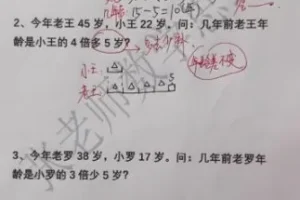 15-5=10
2、今年老王 45 岁,小王 22 岁。问:几年前老王年
龄是小王的 4 倍多 5 岁?
年龄差不变
小王
老王
5
3、今年老罗 38 岁,小罗 17 岁。问:几年前老罗年
龄是小罗的 3 倍少 5 岁?
张老师数学